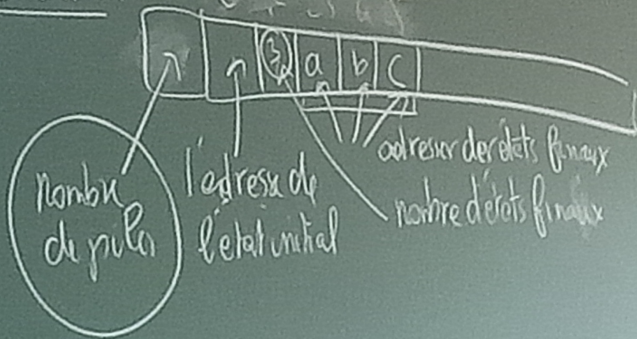 3 a b c
nombre
de piles
l'adresse de
l'état initial
adresses des états finaux
nombre d'états finaux